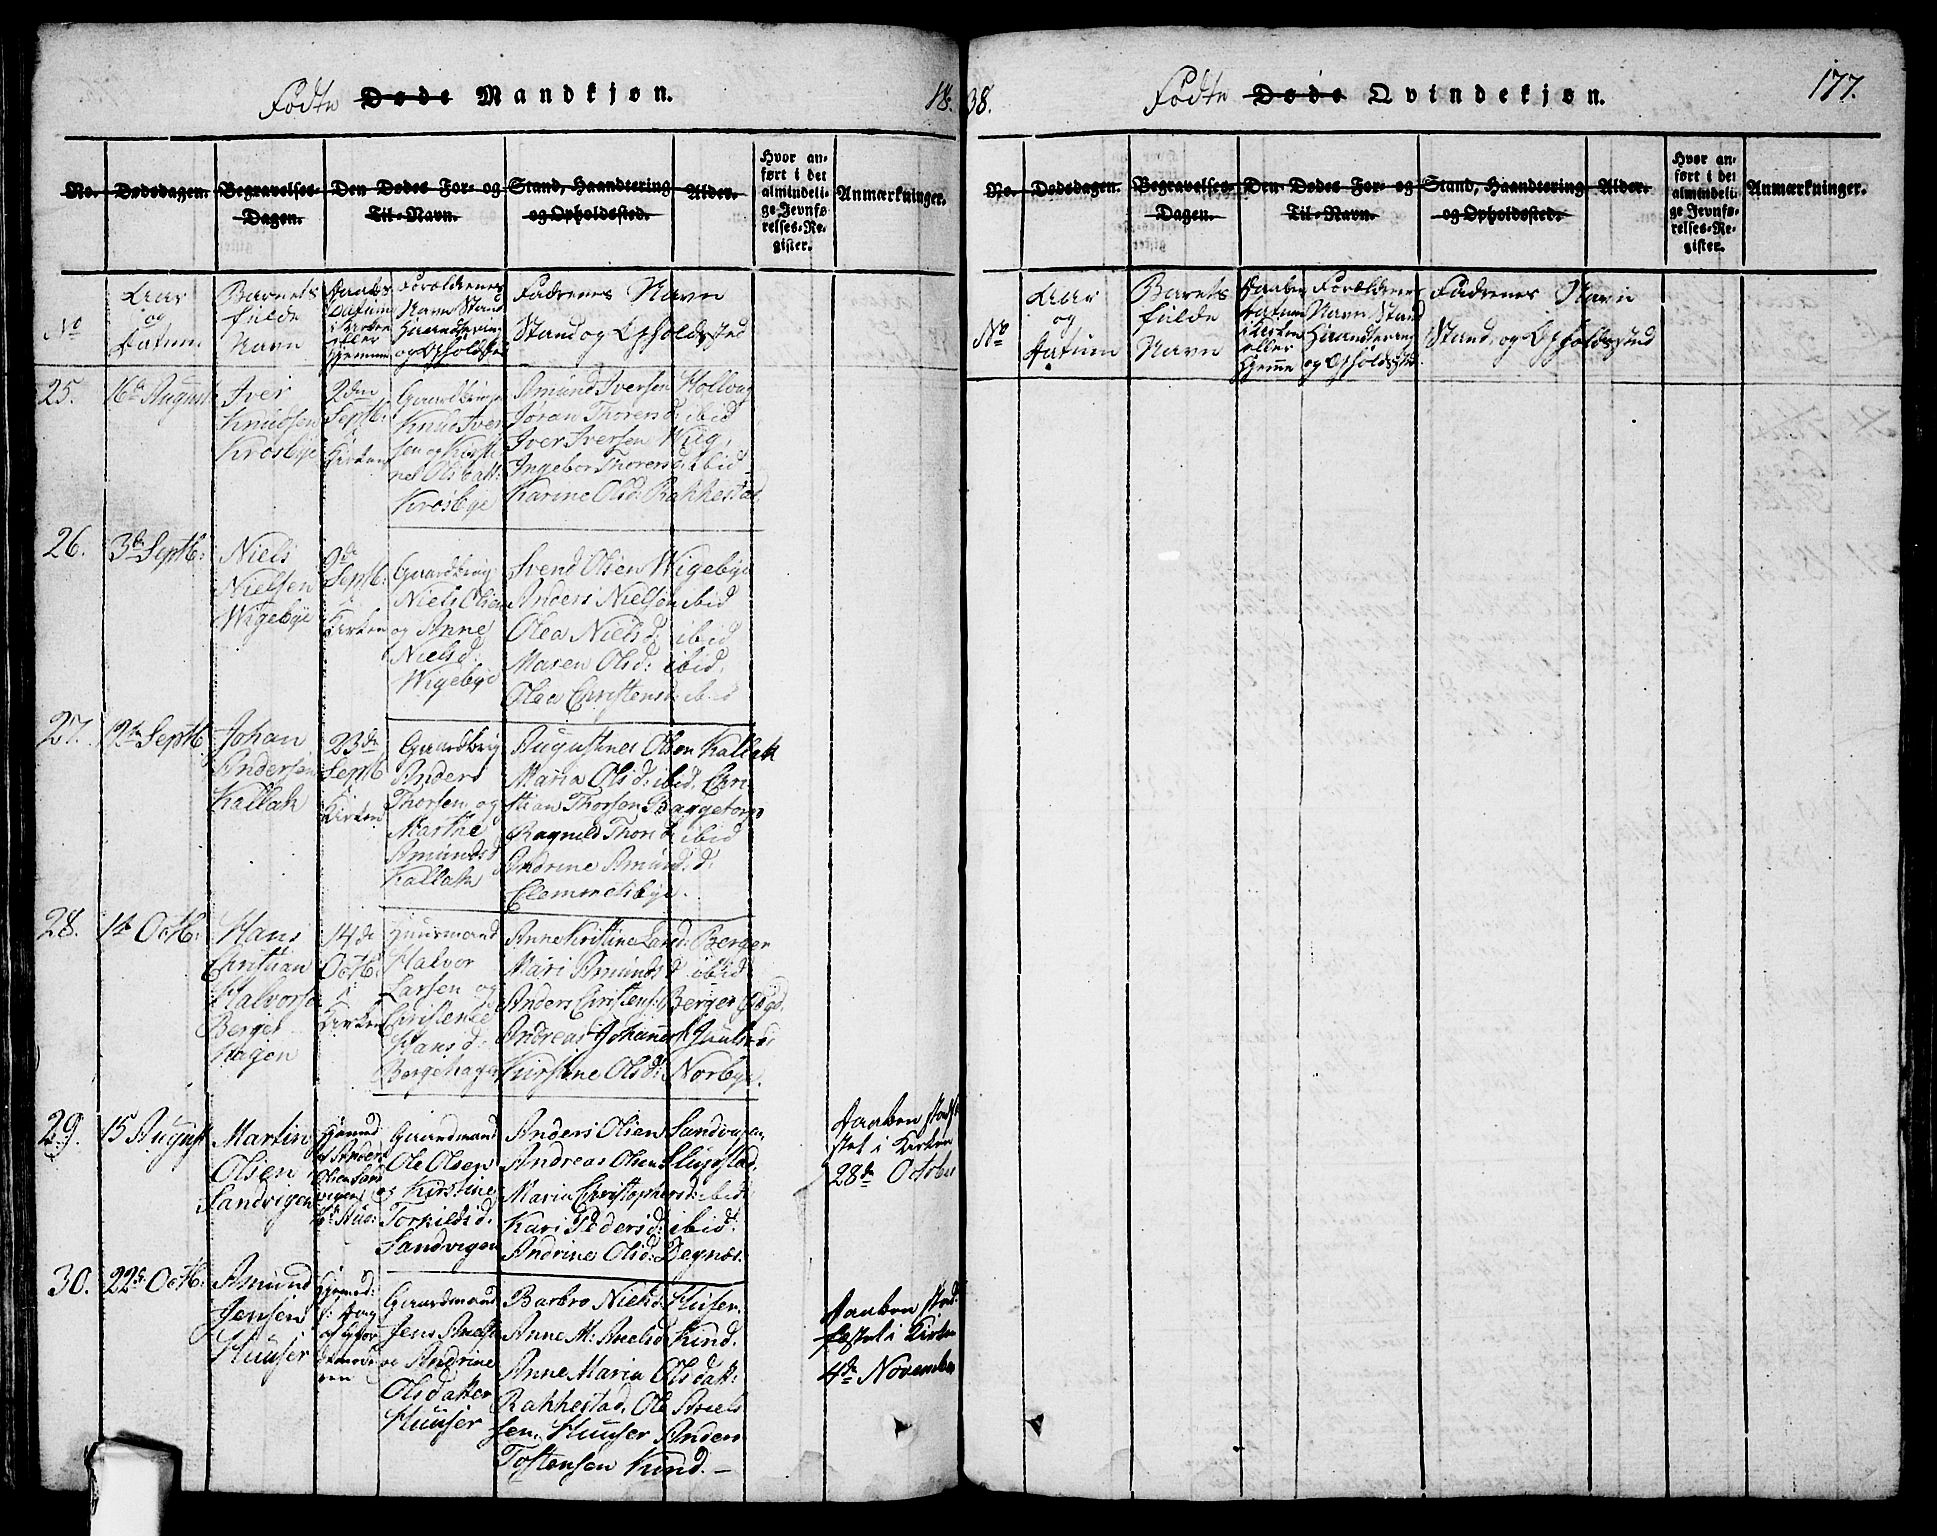 Fødte Døde Mandkjøn.
18
No.
Dødsdagen.
Begravelses-
Dagen.
Den Dødes For- og
Til-Navn.
Stand, Haandtering
og Opholdssted.
Alder.
Hvor an-
ført i det
almindeli-
ge Jevnfø-
relses-Re-
gister.
Anmærkninger.
No
Aar
og
Datum
Barnets
fulde
Navn
Daabs
Datum
i Kirken
eller
Hjemme
Forældrenes
Navn Stand
Haandtering
og Opholdsted
Faddernes Navn
Stand og Opholdssted
25.
16de August
Iver
Knudsen
Krosbye
2den
Septb:
i
Kirken
Gaardbruger
Knud Iver
sen og Kirsti
ne Olsdatt:
Krosbye
Amund Iversen Hollvag
Joran Thorersd: ibid
Iver Iversen Wiig,
Ingebor Thorersd: ibid
Karine Olsd: Rakkestad.
26.
3de Septb:
Niels
Nielsen
Wigebye
9de
Septb:
i
Kirken
Gaardbrug
Niels Olsen
og Anne
Nielsd:
Wigebye
Svend Olsen Wigebye
Anders Nielsen ibid
Olea Nielsd: ibid
Maren Olsd: ibid.
Olea Christensd: ibid
27.
12te Septb.
Johan
Andersen
Kallak
23de
Septb
i
Kirken
Gaardbrug
Anders
Thorsen og
Marthe
Amundsd
Kallak
Augustines Olsen Kallak
Maria Olsd: ibid. Chri
stian Thorsen Borgetorp
Ragnild Thorsd: ibid
Andrine Amundsd:
Clemmetsbye.
28.
1te Octb:
Hans
Christian
Halvorsen
Berge
Hagen
14de
Octb:
i
Kirken
Huusmand
Halvor
Larsen og
Christense
Hansd:
Bergehagen
Anne Kristine Larsd: Berger
Mari Amundsd ibid
Anders Christens: Berger
Andreas Johannes:
Kirstine Olsd: Norbye.
29.
15 August
Martin
Olsen
Sandvigen
Hjemmed
af Anders
Olsen Sand
vigen
Gaardmand
Ole Olsen
og Kirstine
Torkildsd.
Sandvigen
Anders Olsen Sandvigen,
Andreas Olsen Slugstad.
Maria Christophersd: ibid:
Kari Pedersd: ibid:
Andrine Olsd: Degnæs.
Daaben stadfæ
stet i Kirken
28de October
30.
22de Octb:
Amund
Jensen
Huuser
Gaardmand
Jens Arelse
og Andrine
Olsdatter
Huuser
Barbro Nielsd: Huser.
Anne M: Arelsd: Kind.
Anne Maria Olsdatt:
Rakkestad. Ole Arels
sen. Huuser Anders
Tostensen Kind. –
Daaben stad:
fæstet i Kirken
4de November
38.
Fødte Døde Qvindekjøn.
177.
No.
Dødsdagen.
Begravelses-
Dagen.
Den Dødes For- og
Til-Navn.
Stand, Haandtering
og Opholdssted.
Alder.
Hvor an-
ført i det
almindeli-
ge Jevnfø-
relses-Re-
gister.
Anmærkninger.
No
Aar
og
Datum
Barnets
fulde
Navn
Daabs
Datum
i Kirken
eller
Hjeme
Forældrenes
Navn, Stand
Haandtering
og Opholdsted
Faddernes Navn
Stand, og Opholdssted